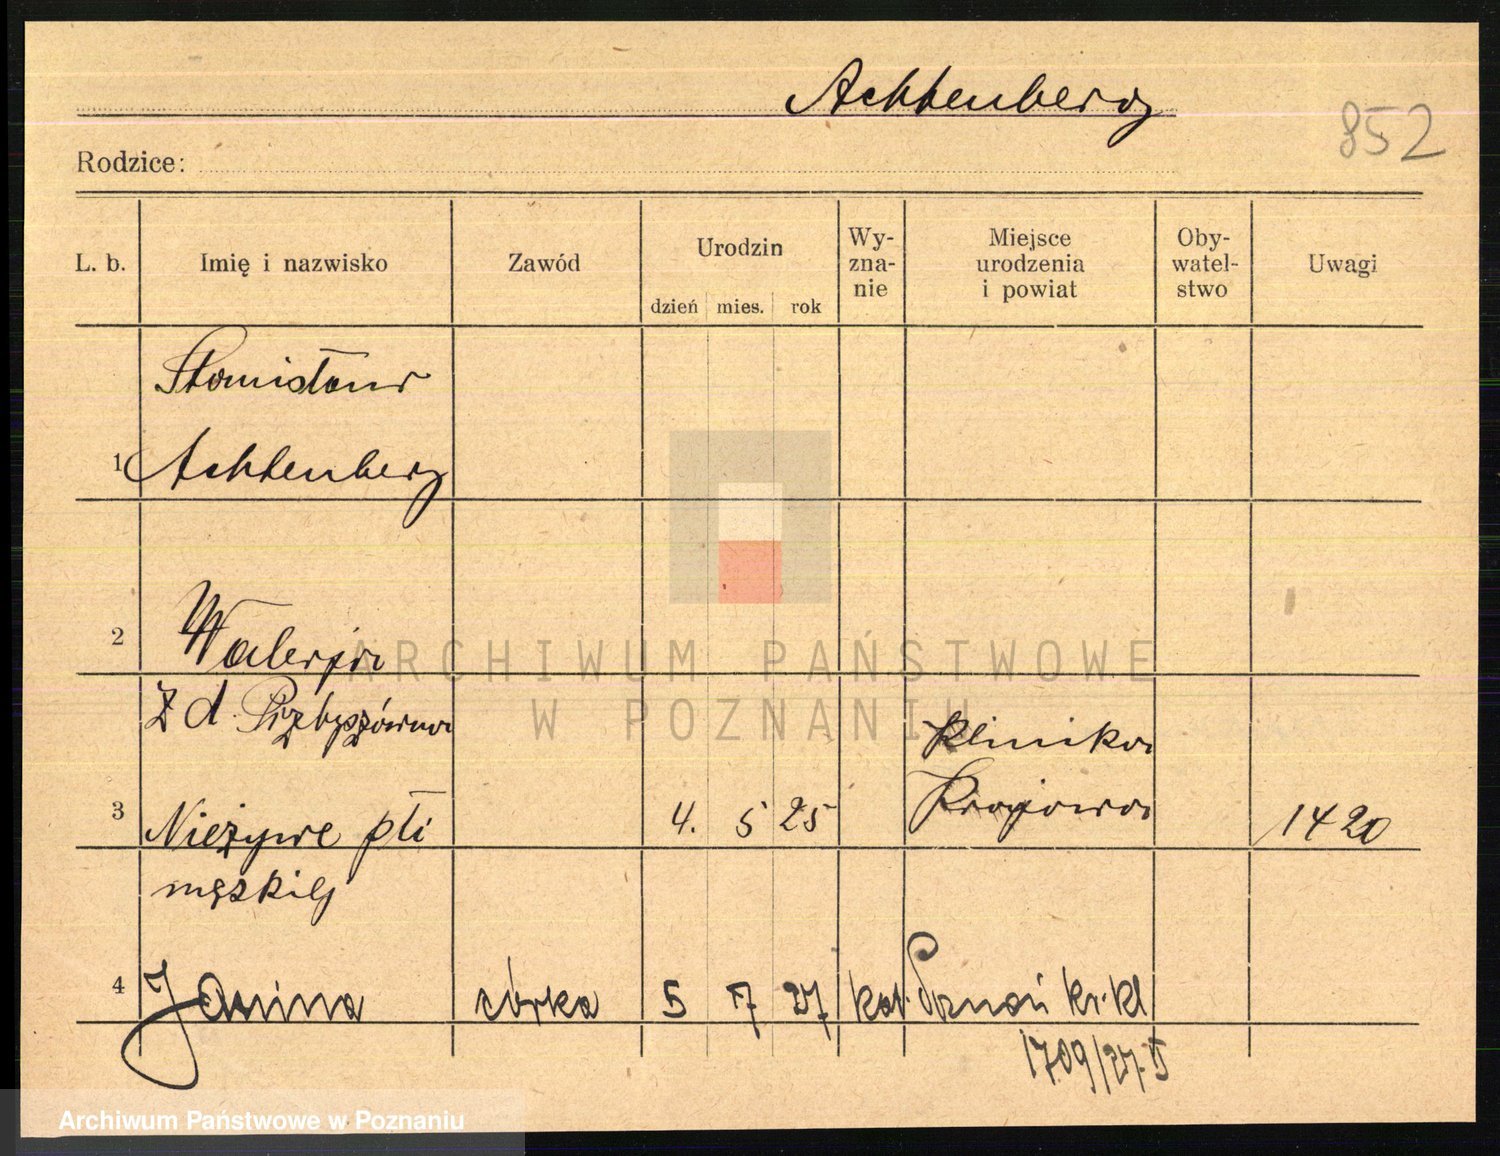 Achtenberg
852
Rodzice:
L. b. Imię i nazwisko Zawód Urodzin dzień mies. rok Wy-zna-nie Miejsce urodzenia i powiat Oby-watel-stwo Uwagi
Stanisław
1 Achtenberg
2 Walerja
z d. Przybyszówna
Klinika
3 Nieżywe płci 4. 5 25 Krajowa 1420
męzkiej
4 Janina córka 5 7 27 kat. Poznań kr. kl
1709/27. 5
ARCHIWUM PAŃSTWOWE
W POZNANIU
Archiwum Państwowe w Poznaniu